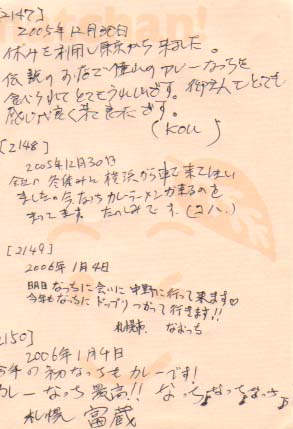 [2147]
2005年12月30日
休みを利用し東京から来ました。
伝説のお店で念願のカレーなっちを
食べられてとてもうれしいです。
感じが良く来て良かったです。
(KOU)
[2148]
2005年12月30日
冬休みに横浜から車で来て
ました。今、なっちカレーラーメンが来るのを
まってます。たのしみです。
[2149]
2006年1月4日
明日なっちに会いに中野に行って来ます♡
今年もなっちにドップリつかって行きます!!
札幌市 なよっち
2150]
2006年1月4日
今年の初なっちもカレーです!
カレーなっち最高!! なっち♪なっち♪なっち♪
札幌 富蔵